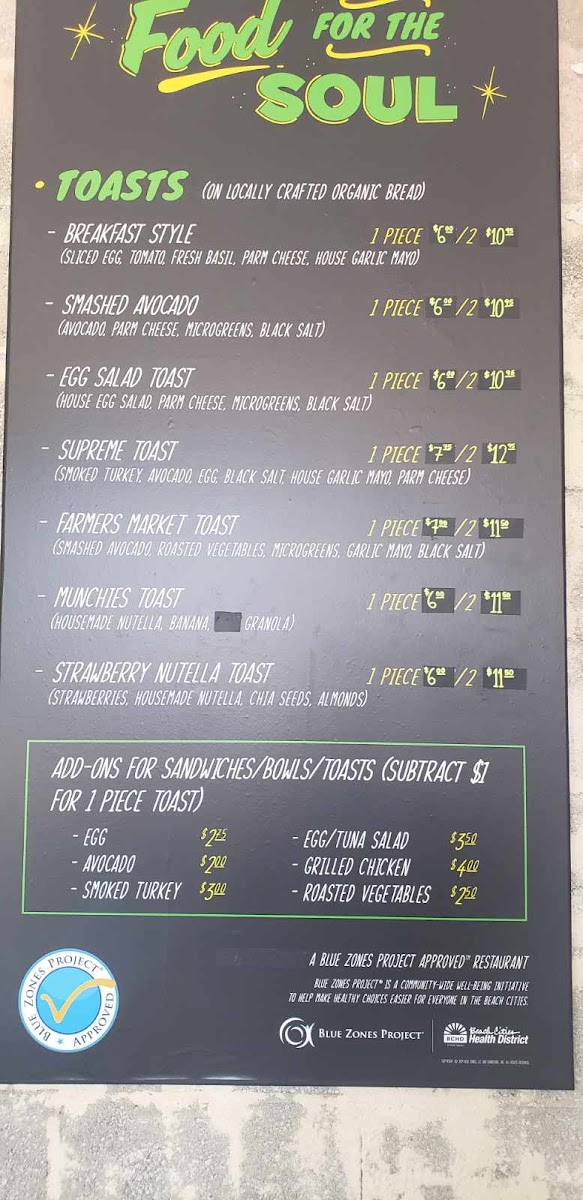 Food FOR THE
SOUL
• TOASTS (ON LOCALLY CRAFTED ORGANIC BREAD)
- BREAKFAST STYLE 1 PIECE $6.00/2
(SLICED EGG, TOMATO, FRESH BASIL, PARM CHEESE, HOUSE GARLIC MAYO)
- SMASHED AVOCADO 1 PIECE $6.00/2 $10.95
(AVOCADO, PARM CHEESE, MICROGREENS, BLACK SALT)
- EGG SALAD TOAST 1 PIECE $6.00/2 $10.95
(HOUSE EGG SALAD, PARM CHEESE, MICROGREENS, BLACK SALT)
- SUPREME TOAST 1 PIECE /2
(SMOKED TURKEY, AVOCADO, EGG, BLACK SALT, HOUSE GARLIC MAYO, PARM CHEESE)
- FARMERS MARKET TOAST 1 PIECE $7.00/2 $11.50
(SMASHED AVOCADO, ROASTED VEGETABLES, MICROGREENS, GARLIC MAYO, BLACK SALT)
- MUNCHIES TOAST 1 PIECE $6.00/2 $11.50
(HOUSEMADE NUTELLA, BANANA, GRANOLA)
- STRAWBERRY NUTELLA TOAST 1 PIECE $6.00/2 $11.50
(STRAWBERRIES, HOUSEMADE NUTELLA, CHIA SEEDS, ALMONDS)
ADD-ONS FOR SANDWICHES/BOWLS/TOASTS (SUBTRACT $1
FOR 1 PIECE TOAST)
- EGG $2.75 - EGG/TUNA SALAD $3.50
- AVOCADO $2.00 - GRILLED CHICKEN $4.00
- SMOKED TURKEY $3.00 - ROASTED VEGETABLES $2.50
BLUE ZONES PROJECT® APPROVED
A BLUE ZONES PROJECT APPROVED™ RESTAURANT
BLUE ZONES PROJECT® IS A COMMUNITY-WIDE WELL-BEING INITIATIVE
TO HELP MAKE HEALTHY CHOICES EASIER FOR EVERYONE IN THE BEACH CITIES.
BLUE ZONES PROJECT® BCHD Beach Cities
Health District